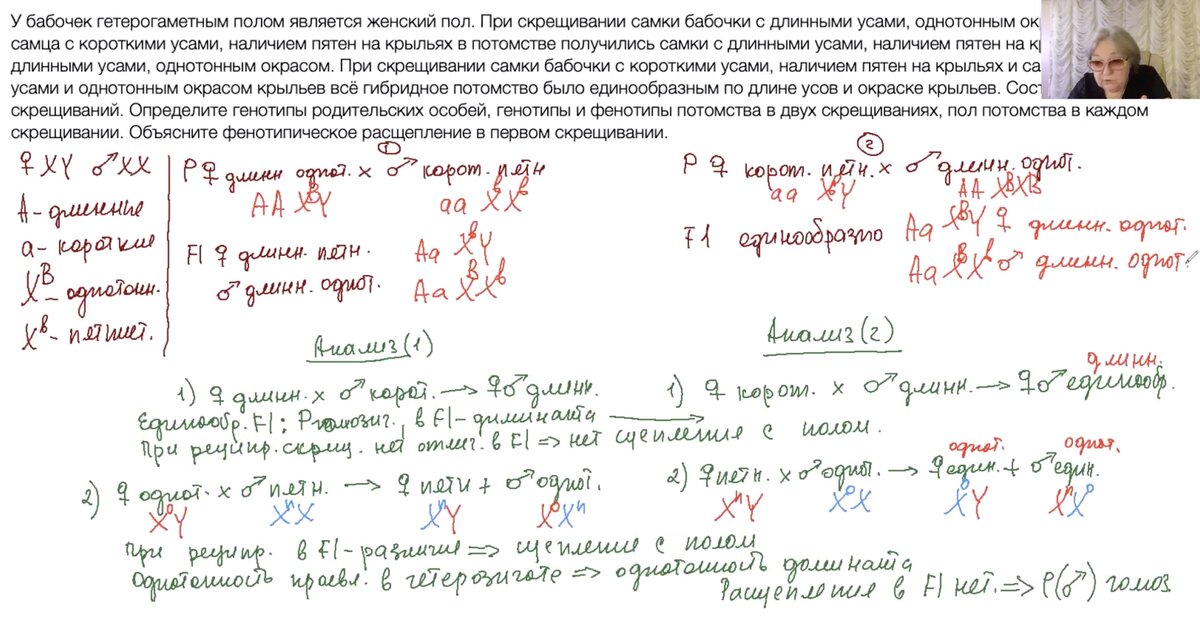 У бабочек гетерогаметным полом является женский пол. При скрещивании самки бабочки с длинными усами, однотонным ок
самца с короткими усами, наличием пятен на крыльях в потомстве получились самки с длинными усами, наличием пятен на к
длинными усами, однотонным окрасом. При скрещивании самки бабочки с короткими усами, наличием пятен на крыльях и са
усами и однотонным окрасом крыльев всё гибридное потомство было единообразным по длине усов и окраске крыльев. Сост
скрещиваний. Определите генотипы родительских особей, генотипы и фенотипы потомства в двух скрещиваниях, пол потомства в каждом
скрещивании. Объясните фенотипическое расщепление в первом скрещивании.
♀ XY ♂ XX
A - длинные
a - короткие
Xᴮ - однотонн.
Xᵇ - пятнист.
1
P ♀ длинн однот. x ♂ корот. пятн
AA XᴮY aa XᵇXᵇ
F1 ♀ длинн. пятн. Aa XᵇY
♂ длинн. однот. Aa XᴮXᵇ
2
P ♀ корот. пятн. x ♂ длинн. однот.
aa XᵇY AA XᴮXᴮ
F1 единообразно Aa XᴮY ♀ длинн. однот.
Aa XᴮXᵇ ♂ длинн. однот.
Анализ (1)
1) ♀ длинн. x ♂ корот. → ♀♂ длинн.
Единообр. F1; P гомозиг., в F1 - доминанта
При реципр. скрещ. нет отлич. в F1 ⇒ нет сцепления с полом.
2) ♀ однот. x ♂ пятн. → ♀ пятн + ♂ однот.
XᵒY XⁿX XⁿY XᵒXⁿ
При реципр. в F1 - различие ⇒ сцепление с полом
Однотонность проявл. в гетерозиготе ⇒ однотонность доминанта
Анализ (2)
длинн.
1) ♀ корот. x ♂ длинн. → ♀♂ единообр.
однот. однот.
2) ♀ пятн. x ♂ однот. → ♀ един. + ♂ един.
XⁿY XᵒX XᵒY XⁿXᵒ
Расщепления в F1 нет. ⇒ P(♂) гомоз